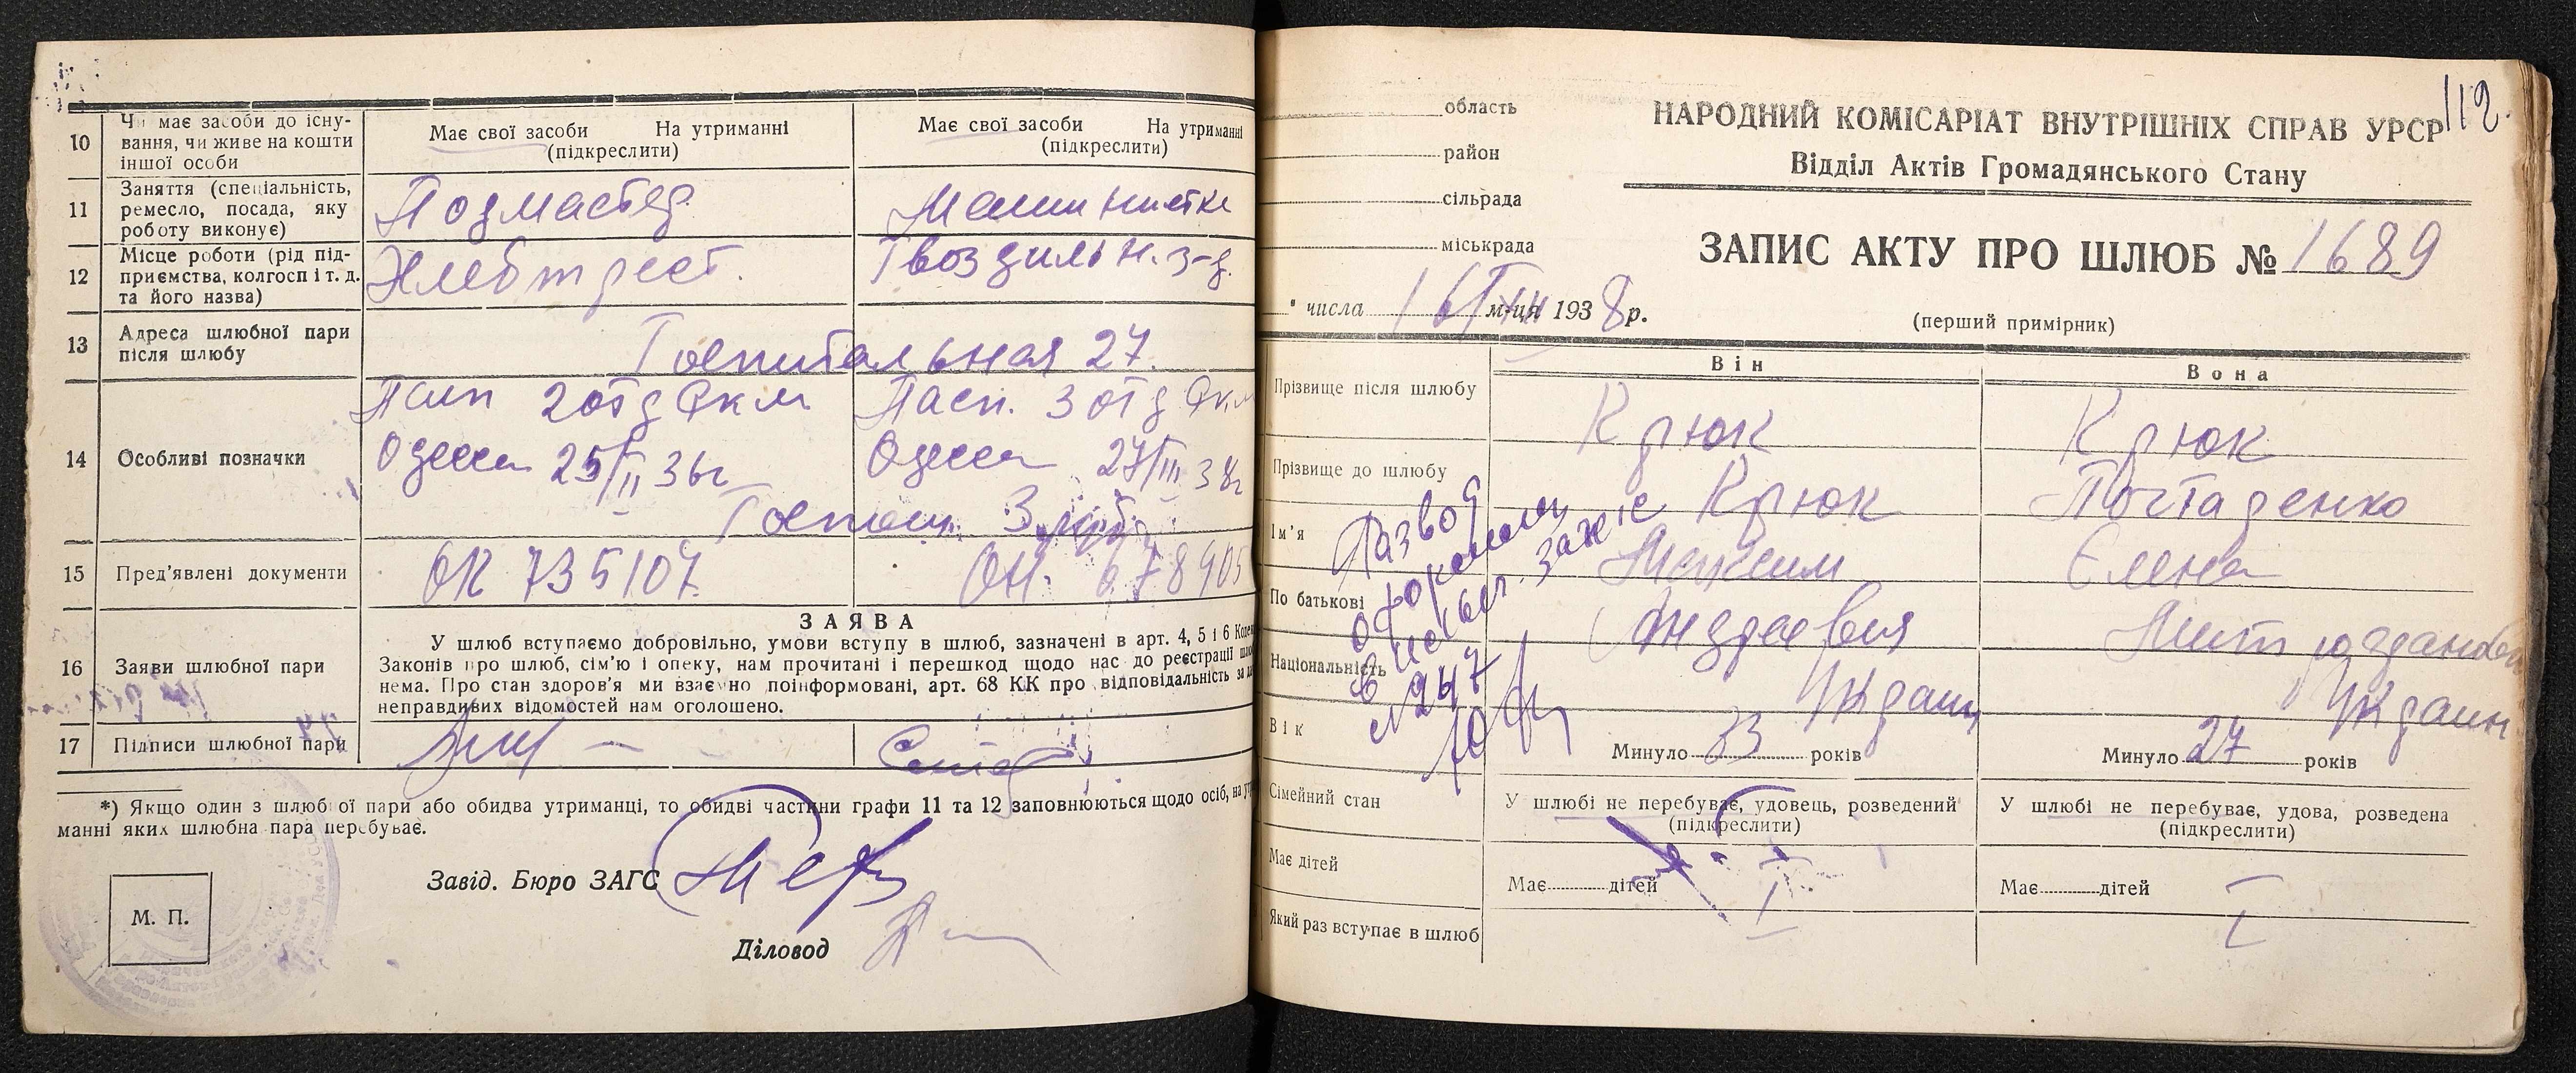 10 Чи має засоби до існування, чи живе на кошти іншої особи
Має свої засоби На утриманні
(підкреслити)
Має свої засоби На утриманні
(підкреслити)
11 Заняття (спеціальність, ремесло, посада, яку роботу виконує)
Подмастер
Машинистка
12 Місце роботи (рід підприємства, колгосп і т. д. та його назва)
Хлебтрест.
Гвоздильн. з-д.
13 Адреса шлюбної пари після шлюбу
Госпитальная 27.
14 Особливі позначки
Пасп 2 отд Окм
Одесса 25/II 36г
Пасп. 3 отд Окм
Одесса 27/III 38г
3 руб
15 Пред'явлені документи
ОК 735107
ОН. 678905
16 Заяви шлюбної пари
ЗАЯВА
У шлюб вступаємо добровільно, умови вступу в шлюб, зазначені в арт. 4, 5 і 6
Законів про шлюб, сім'ю і опеку, нам прочитані і перешкод щодо нас до реєстрації
нема. Про стан здоров'я ми взаємно поінформовані, арт. 68 КК про відповідальність за
неправдивих відомостей нам оголошено.
17 Підписи шлюбної пари
*) Якщо один з шлюбної пари або обидва утриманці, то обидві частини графи 11 та 12 заповнюються щодо осіб, на
манні яких шлюбна пара перебуває.
Завід. Бюро ЗАГС
М. П.
Діловод
112.
область
район
сільрада
міськрада
НАРОДНИЙ КОМІСАРІАТ ВНУТРІШНІХ СПРАВ УРСР
Відділ Актів Громадянського Стану
ЗАПИС АКТУ ПРО ШЛЮБ № 1689
" числа 16 м-ця 1938 р.
(перший примірник)
Він
Вона
Прізвище після шлюбу
Крюк
Крюк
Прізвище до шлюбу
Крюк
Почтаренко
Ім'я
Максим
Елена
По батькові
Андреевич
Митрофановна
Національність
Украин
Украин
Вік
Минуло 33 років
Минуло 27 років
Сімейний стан
У шлюбі не перебуває, удовець, розведений
(підкреслити)
У шлюбі не перебуває, удова, розведена
(підкреслити)
Має дітей
Має дітей
Має дітей
Який раз вступає в шлюб
I
I
Развод
оформлен
в
№ 247